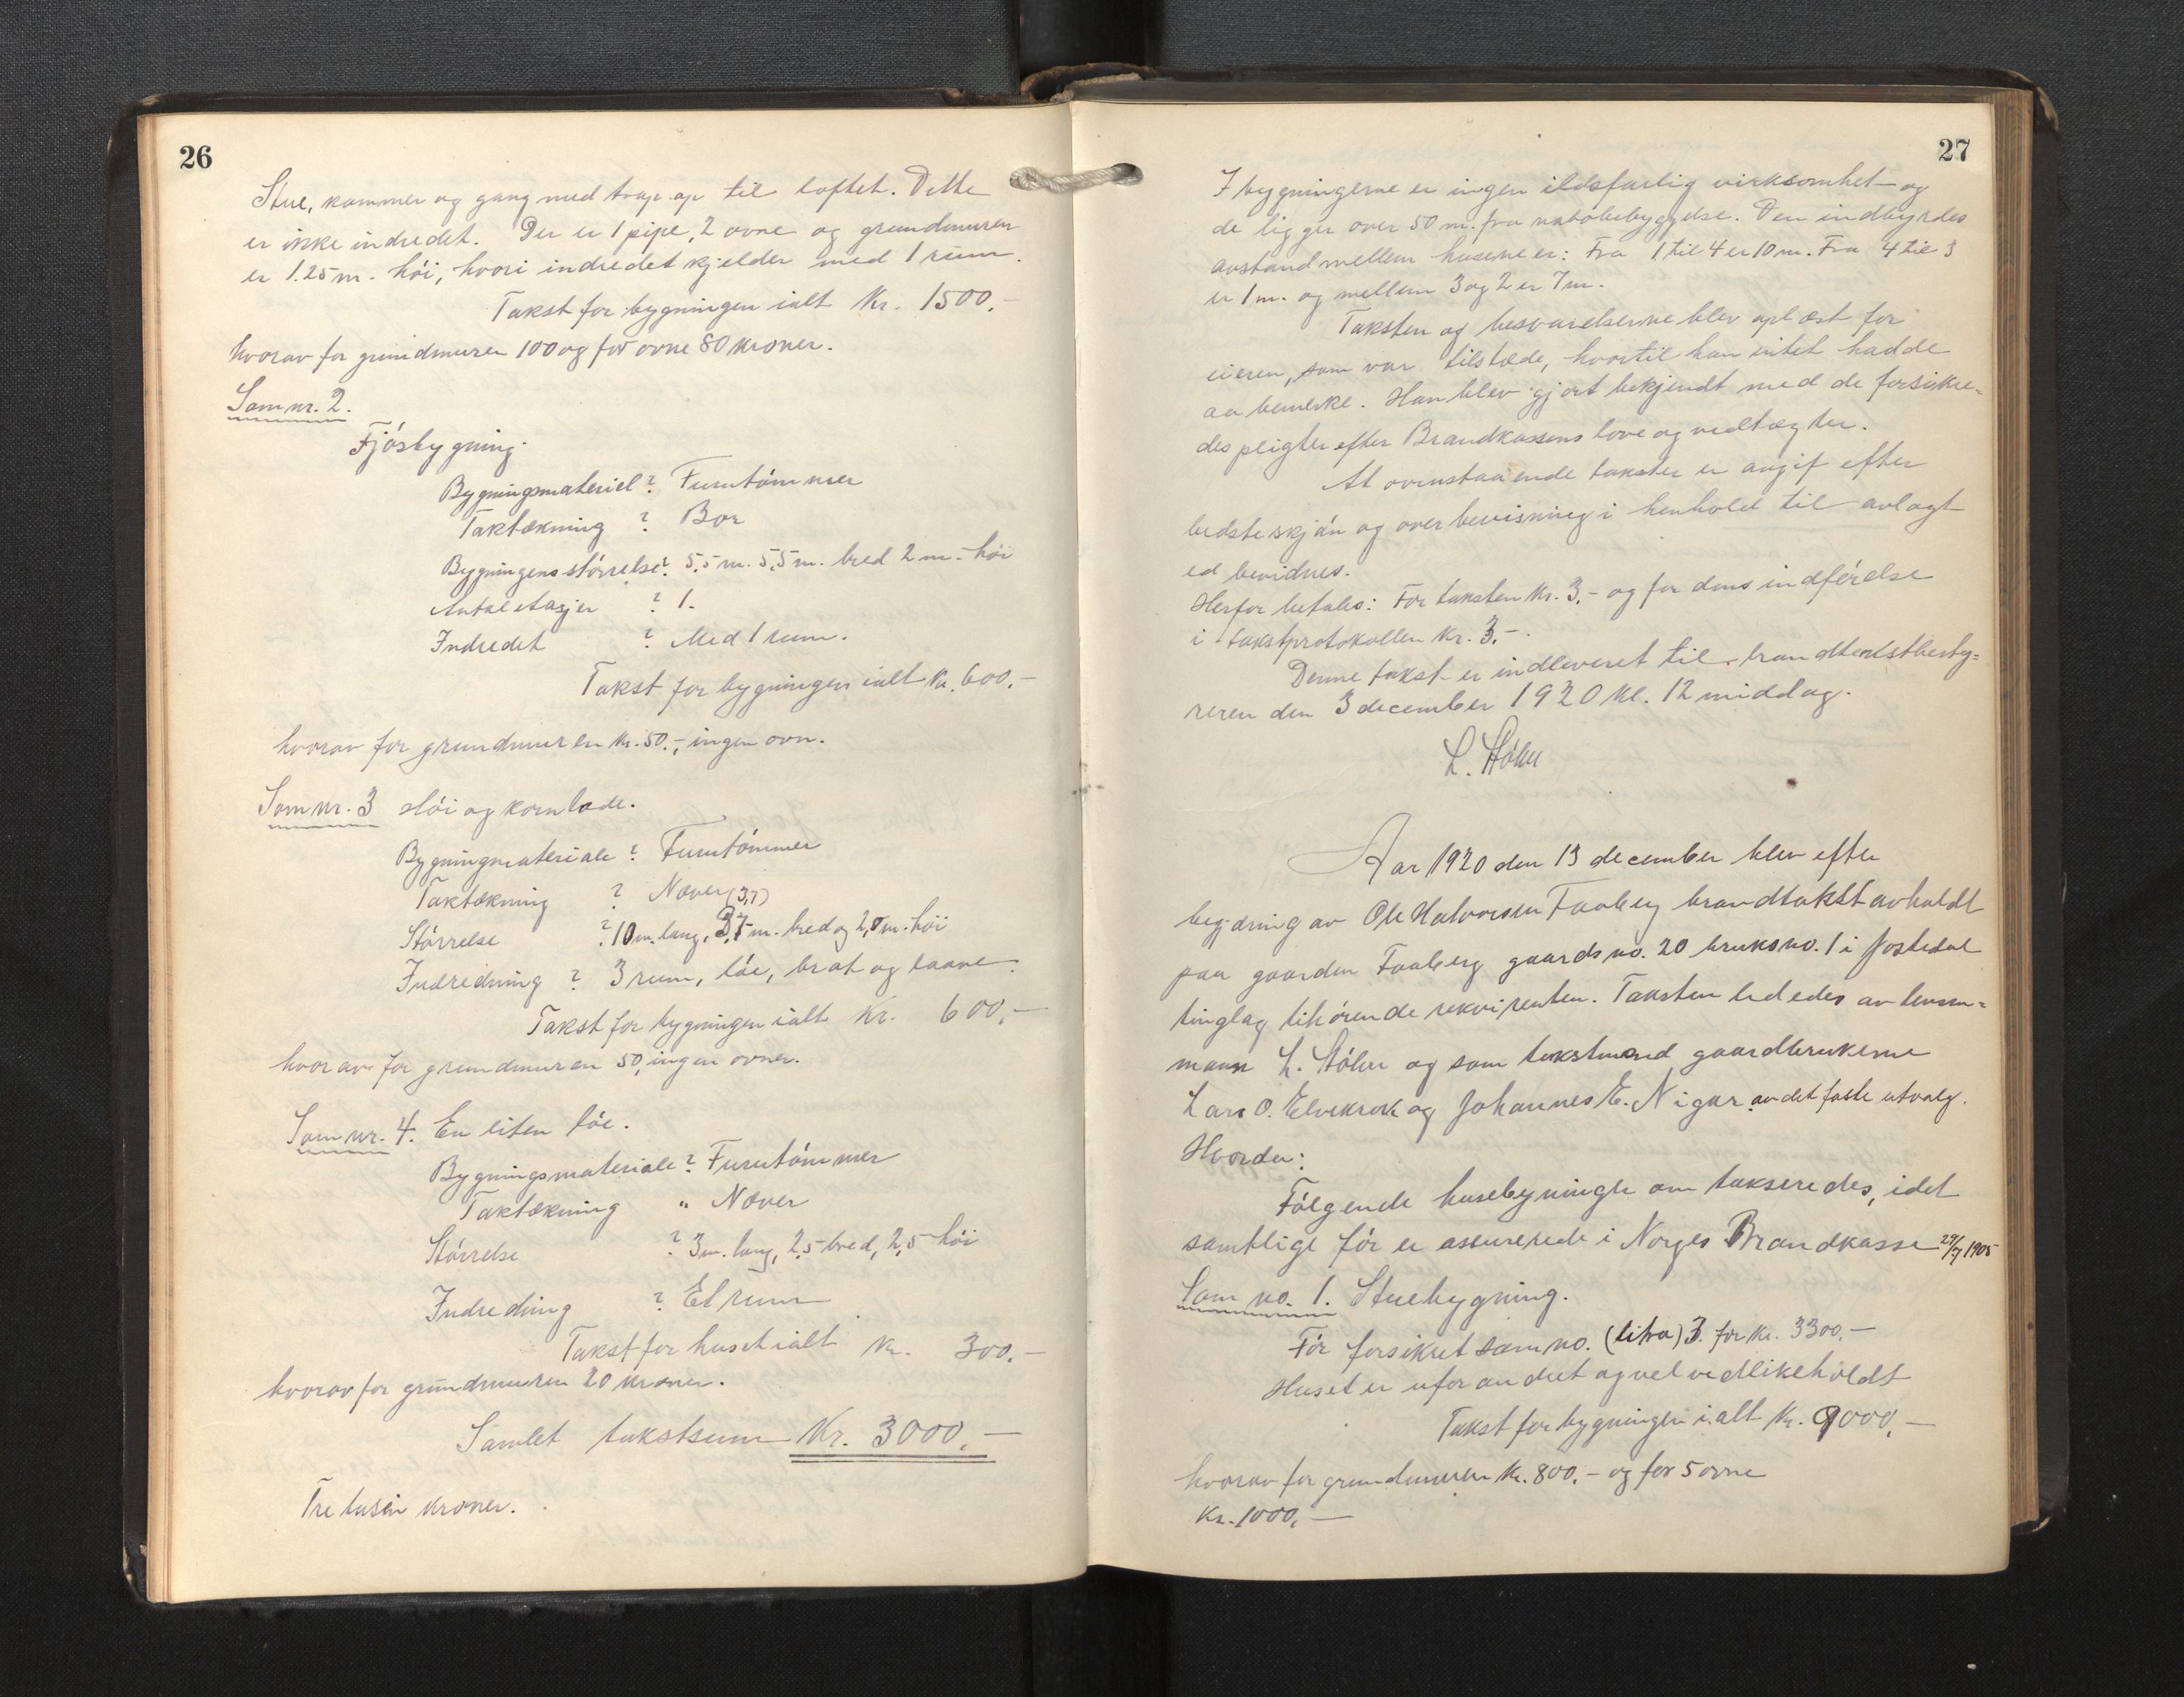 26
Stue, kammer og gang med trap op til loftet. Dette
er ikke indredet. Der er 1 pipe, 2 ovne og grundmuren
er 1.25 m. høi, hvori indredet kjelder med 1 rum.
Takst for bygningen ialt Kr. 1500.-
hvorav for grundmuren 100 og for ovne 80 kroner.
Som nr. 2.
Fjøsbygning.
Bygningsmateriel? Furutømmer
Taktækning ? Bor
Bygningens størrelse? 5,5 m. 5,5 m. bred 2 m. høi
Antal etasjer ? 1.
Indredet ? Med 1 rum.
Takst for bygningen ialt Kr. 600.-
hvorav for grundmuren Kr. 50.-, ingen ovn.
Som nr. 3 Høi og kornlade.
Bygningmateriale? Furutømmer
Taktækning ? Næver (3,7)
Størrelse ? 10 m. lang, 3,7 m. bred og 2,0 m. høi
Indredning ? 3 rum, løe, brat og laave.
Takst for bygningen ialt Kr. 600,-
hvorav for grundmuren 50, ingen ovner.
Som nr. 4. En liten løe.
Bygningsmateriale? Furutømmer
Taktækning " Næver
Størrelse ? 3 m. lang, 2,5 bred, 2,5 høi
Indredning ? Et rum
Takst for huset ialt Kr. 300.-
hvorav for grundmuren 20 kroner.
Samlet takstsum Kr. 3000.-
Tre tusin kroner.
27
I bygningerne er ingen ildsfarlig virksomhet og
de ligger over 50 m. fra nabobebyggelse. Den indbyrdes
avstand mellem husene er: Fra 1 til 4 er 10 m. Fra 4 til 3
er 1 m. og mellem 3 og 2 er 7 m.
Taksten og besvarelserne blev oplæst for
eieren, som var tilstæde, hvortil han intet hadde
aa bemerke. Han blev gjort bekjendt med de forsikre=
des pligter efter Brandkassens love og vedtægter.
At ovenstaaende takster er avgit efter
bedste skjøn og overbevisning i henhold til avlagt
ed bevidnes.
Herfor betales: For taksten Kr. 3.- og for dens indførelse
i takstprotokollen Kr. 3.-
Denne takst er indleveret til brandtakstbesty=
reren den 3 december 1920 kl. 12 middag.
L. Støhn
Aar 1920 den 13 december blev efter
begjæring av Ole Halvorsen Faaberg brandtakst avholdt
paa gaarden Faaberg gaards no. 20 bruksno. 1 i Jostedal
tinglag tihørende rekvirenten. Taksten lededes av lens=
mann L. Støhn og som takstmænd gaardbrukerne
Lars O. Elvekrok og Johannes E. Nigar av det faste utvalg.
Hvorda:
Følgende husebygninger om takseredes, idet
samtlige før er assurerede i Norges Brandkasse 29/7 1905
Som no. 1. Stuebygning.
Før forsikret som no. (litra) 3. for Kr. 3300.-
Huset er uforandret og vel vedlikeholdt
Takst for bygningen ialt Kr. 9000,-
hvorav for grundmuren Kr. 800.- og for 5 ovne
Kr. 1000,-